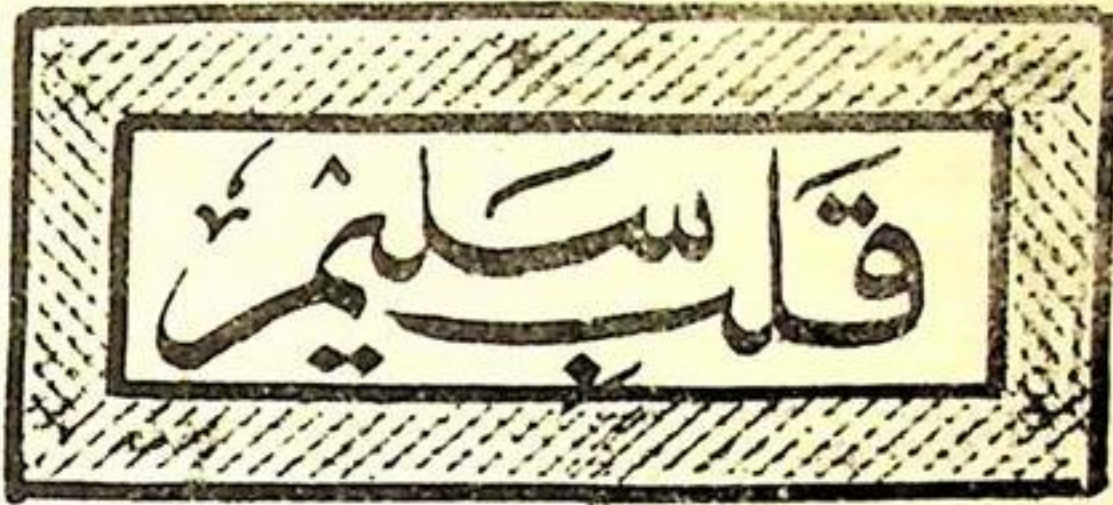 قَلبِ سَليم